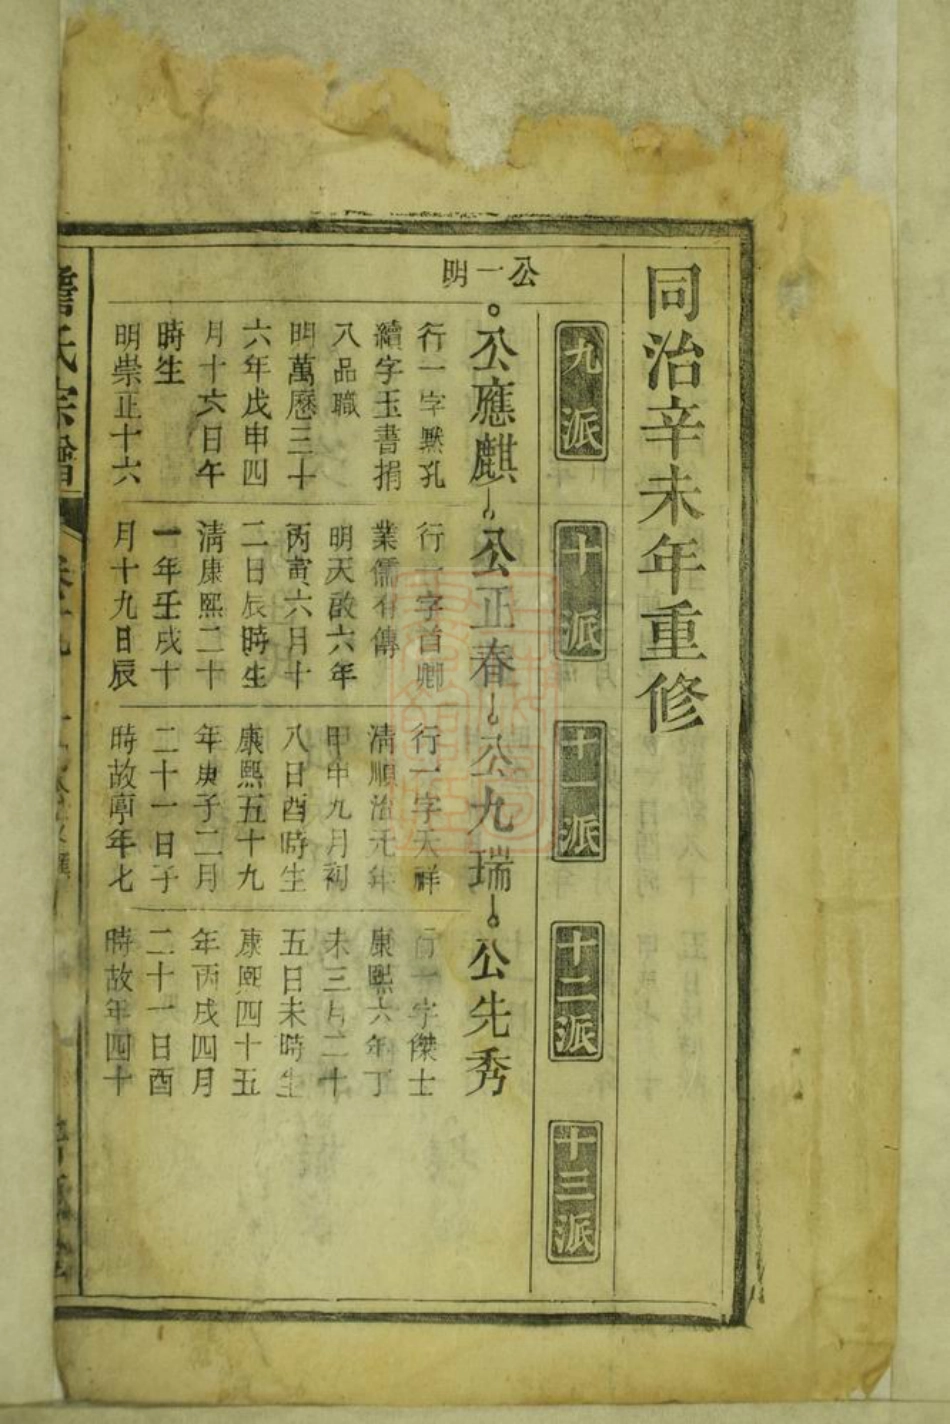 同治辛未年重修
九派
十派
十一派
十二派
十三派
公一明
公應麒
公正春
公九瑞
公先秀
行一字默孔
續字玉書捐
八品職
明萬歷三十
六年戊申四
月十六日午
時生
明崇正十六
行一字首卿
業儒有傳
明天啟六年
丙寅六月十
二日辰時生
清康熙二十
一年壬戌十
月十九日辰
行一字天祥
清順治元年
甲申九月初
八日酉時生
康熙五十九
年庚子二月
二十一日子
時故享年七
行一字傑士
康熙六年丁
未三月二十
五日未時生
康熙四十五
年丙戌四月
二十一日酉
時故年四十
詹氏宗譜